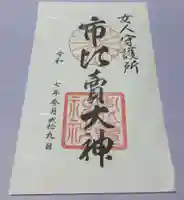 女人守護所
市比賣大神
令和
七年令月弐拾九日